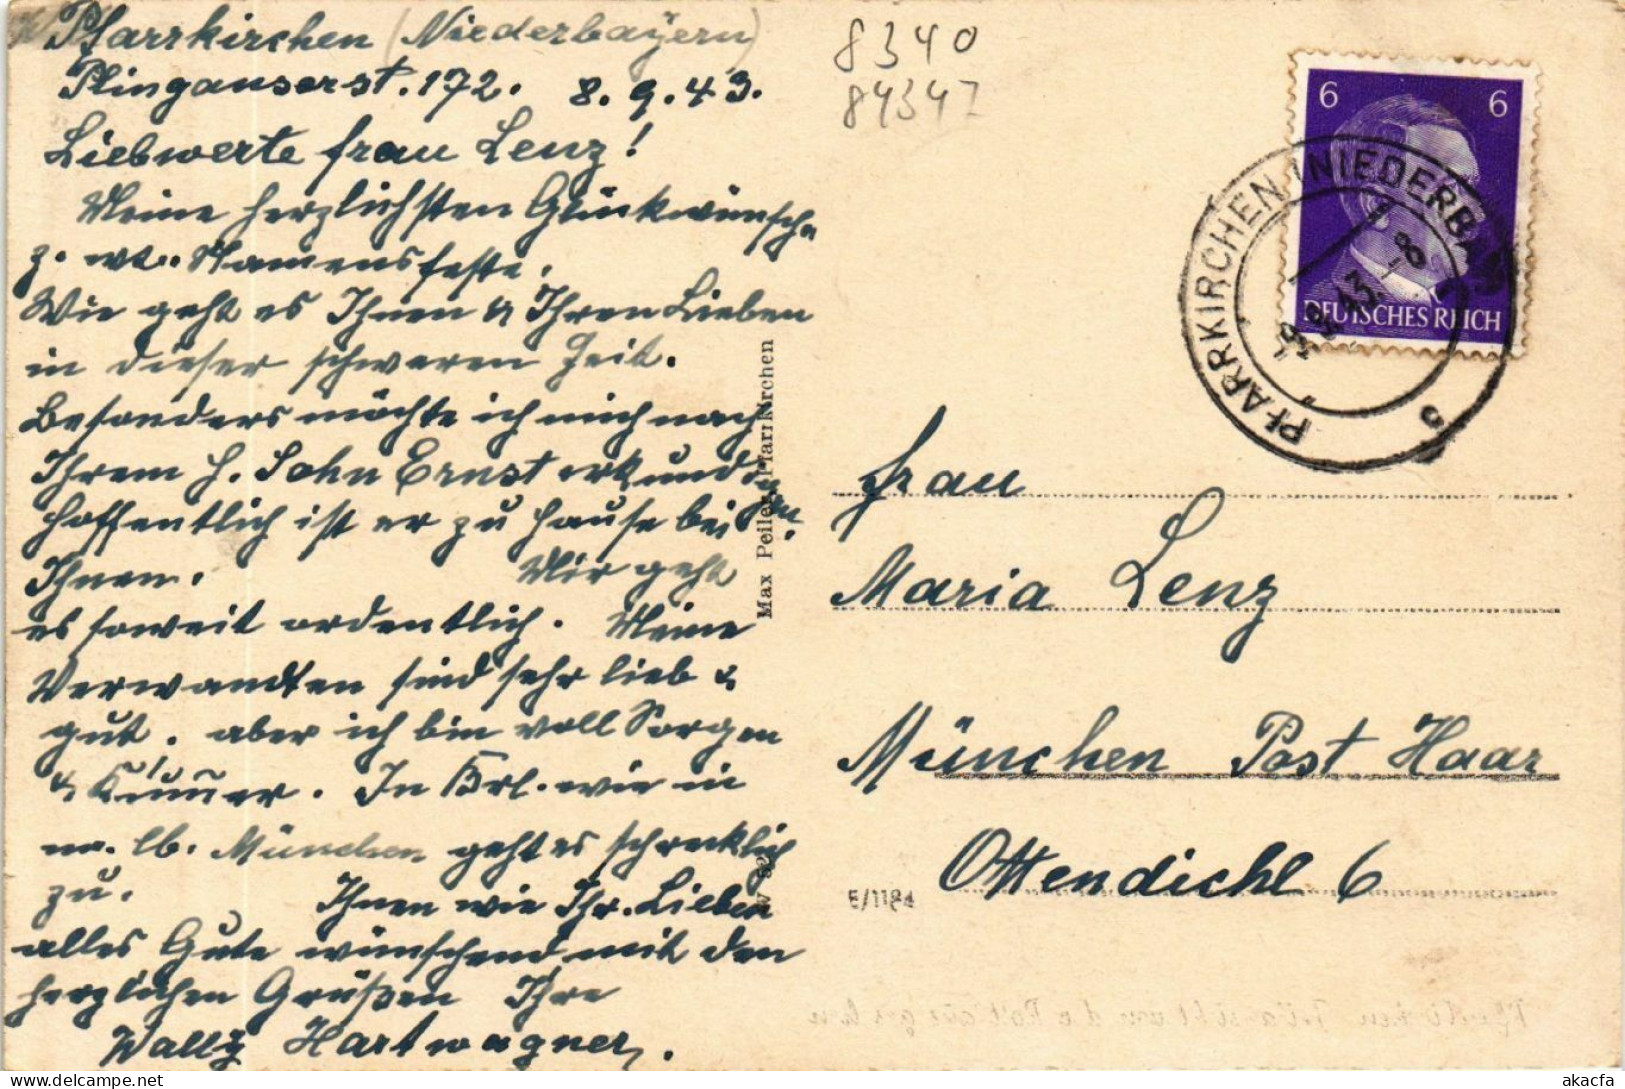 Pfarrkirchen (Niederbayern)
Plinganserst. 172. 8.9.43.
Liebwerte Frau Lenz!
Meine herzlichsten Glückwünsche
z. wt. Namensfeste.
Wie geht es Ihnen & Ihren Lieben
in dieser schweren Zeit.
Besonders möchte ich mich nach
Ihrem H. Sohn Ernst erkundigen.
Hoffentlich ist er zu Hause bei
Ihnen. Mir geht
es soweit ordentlich. Meine
Verwandten sind sehr lieb &
gut. aber ich bin voll Sorgen
& Kum̄er. In Brl. wie in
m. lb. München geht es schrecklich
zu. Ihnen wie Ihr. Lieben
alles Gute wünschend mit den
herzlichen Grüßen Ihre
Wally Hartwagner.
Max Peiler, Pfarrkirchen
8340
84347
6 6
DEUTSCHES REICH
PFARRKIRCHEN (NIEDERBAY)
b
Frau
Maria Lenz
München Post Haar
Ottendichl 6
E/1184
akacfa